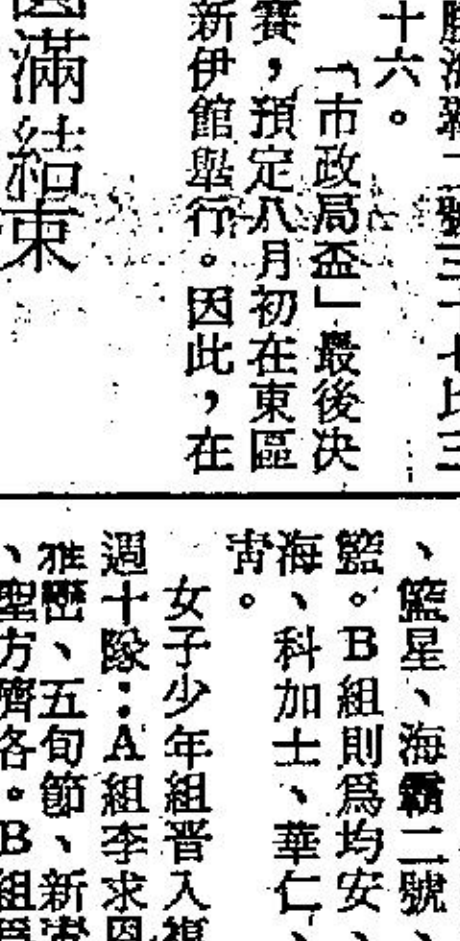 十六。
「市政局盃」最後決
賽，預定八月初在東區
新伊館舉行。因此，在
圓滿結束
、籃星、海霸二號、
籃。B組則爲均安、
海、科加士、華仁、
青。
女子少年組晋入複
週十隊：A組李求恩
雅麗、五旬節、新
、聖方濟各。B組爲